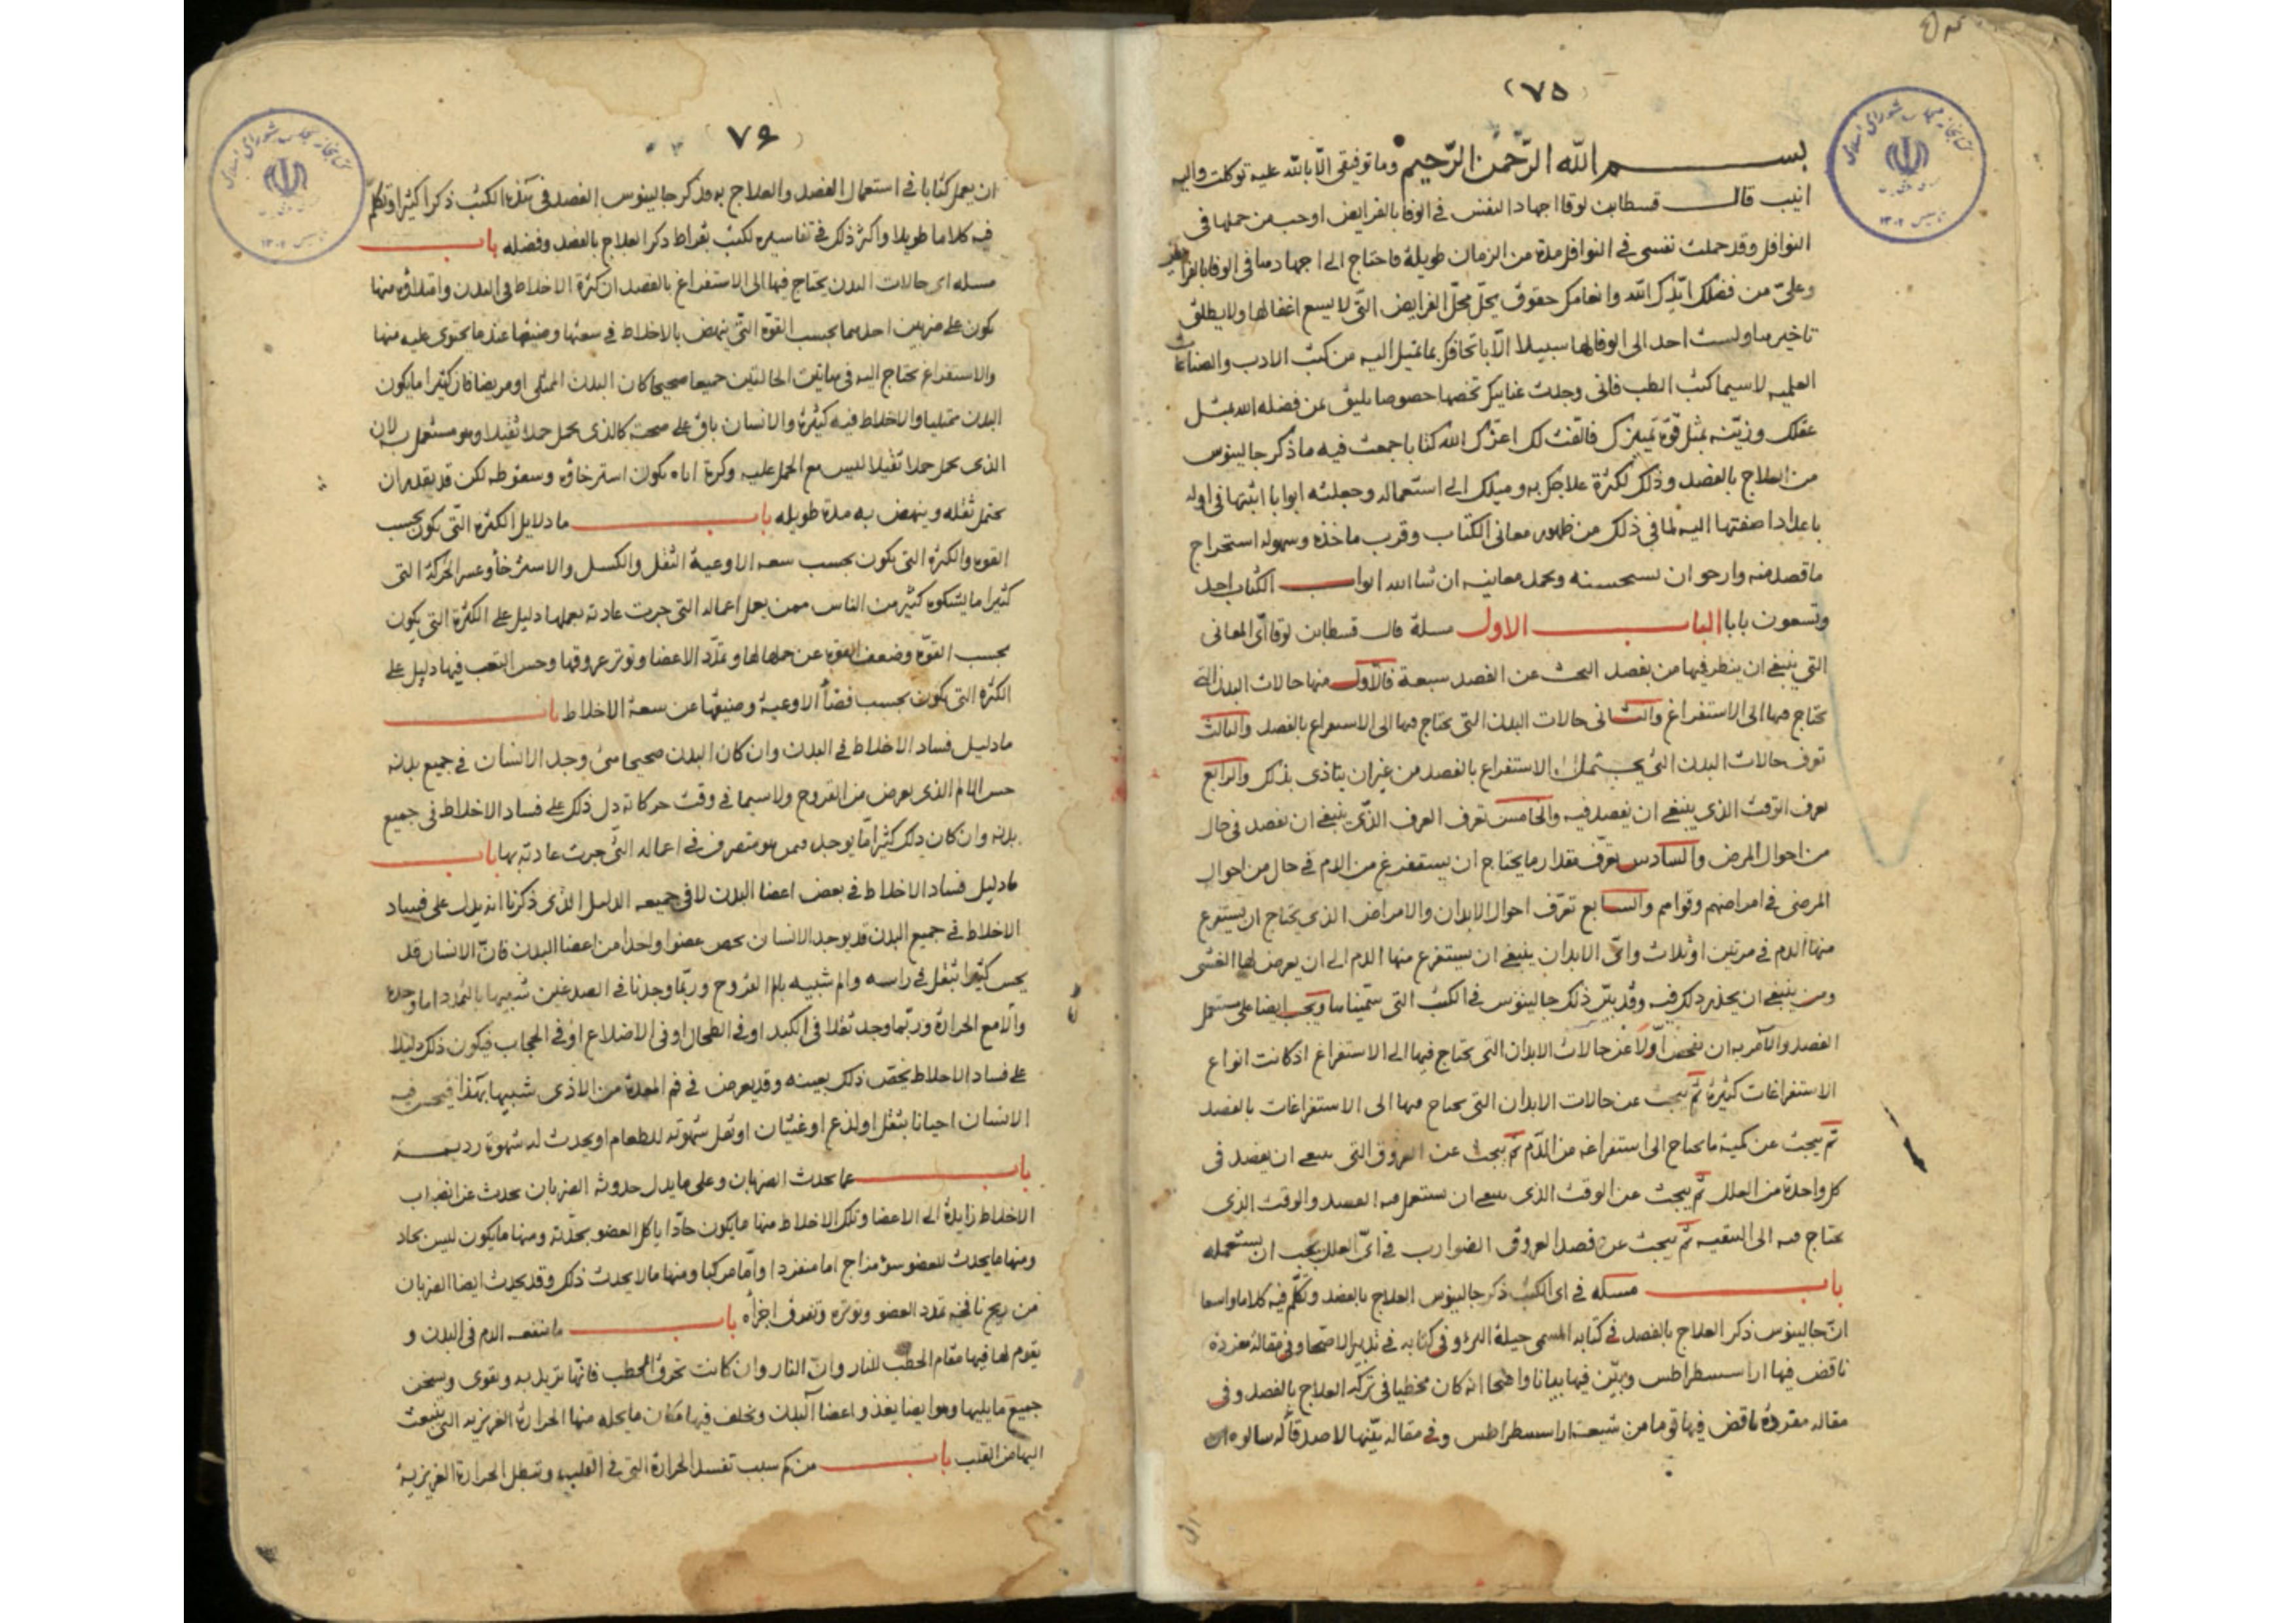 (٧٥)
بسم الله الرّحمن الرّحيم وما توفيقى الّا بالله عليه توكلت واليه
انيب قال قسطا بن لوقا اجهاد النفس فى الوفا بالفرايض اوجب من حملها فى
النوافل وقد حملت نفسى فى النوافل مدة من الزمان طويلة فاحتاج الى اجهادها فى الوفا بالفرايض
وعلىّ من فضلك ايّدك الله وانعامك حقوق يحلّ محلّ الفرايض التّى لا يسع اغفالها ولا يطلق
تاخيرها ولست اجد الى الوفا لها سبيلا الّا باتحافك بما تميل اليه من كتب الادب والصناعات
العلميه لاسيما كتب الطب فانى وجدت عنايتك تخصها خصوصا يليق بمن فضله الله بمثل
عقلك وزيّنه بمثل قوّة تميزك فالّفت لك اعزّك الله كتابا جمعت فيه ما ذكر جالينوس
من العلاج بالفصد وذلك لكثرة علاجك به وميلك الى استعماله وجعلته ابوابا اثبتها فى اوله
باعداد اضفتها اليه لما فى ذلك من ظهور معانى الكتاب وقرب ماخذه وسهوله استخراج
ما قصد منه وارجو ان تستحسنه وتحمد معانيه ان شا الله ابواب الكتاب احد
وتسعون بابا الباب الاول مسلة قال قسطا بن لوقا اىّ المعانى
التى ينبغى ان ينظر فيها من يقصد البحث عن الفصد سبعة فالاّول منها حالات البدن التى
تحتاج فيها الى الاستفراغ والثانى حالات البدن التى تحتاج فيها الى الاستفراغ بالفصد والثالث
تعرف حالات البدن التى يحتمل الاستفراغ بالفصد من غير ان يتاذى بذلك والرابع
تعرف الوقت الذى ينبغى ان يفصد فيه والخامس تعرف العرق الذى ينبغى ان يفصد فى حال
من احوال المرض والسادس تعرّف مقدار ما يحتاج ان يستفرغ من الدم فى حال من احوال
المرضى فى امراضهم وقواهم والسابع تعرّف احوال الابدان والامراض الذى يحتاج ان يستفرغ
منها الدم فى مرتين او ثلاث واىّ الابدان ينبغى ان يستفرغ منها الدم الى ان يعرض لها الغشى
ومن ينبغى ان يحذر ذلك فيه وقد بيّن ذلك جالينوس فى الكتب التى سمّيناها ويجب ايضا على مستعمل
الفصد والآمر به ان يفحص اوّلا عن حالات الابدان التى تحتاج فيها الى الاستفراغ اذ كانت انواع
الاستفراغات كثيرة ثمّ يبحث عن حالات الابدان التى تحتاج فيها الى الاستفراغات بالفصد
ثمّ يبحث عن كمية ما يحتاج الى استفراغه من الدّم ثمّ يبحث عن العروق التى ينبغى ان يفصد فى
كل واحدة من العلل ثمّ يبحث عن الوقت الذى ينبغى ان يستعمل فيه الفصد والوقت الذى
يحتاج فيه الى التنقيه ثمّ يبحث عن فصد العروق الضوارب فى اىّ العلل يجب ان يستعمله
باب مسئله فى اى الكتب ذكر جالينوس العلاج بالفصد وتكلّم فيه كلاما واسعا
انّ جالينوس ذكر العلاج بالفصد فى كتابه المسمى حيلة البرؤ وفى كتابه فى تدبير الاصحّا وفى مقالة مفردة
ناقض فيها اراسسطراطس وبيّن فيها بيانا واضحا انه كان مخطيا فى تركه العلاج بالفصد وفى
مقاله مفردة ناقض فيها قوما من شيعة اراسسطراطس وفى مقاله بيّنها لاصدقآئه سالوه ان
(٧۶)
ان يعمل كتابا فى استعمال الفصد والعلاج به وقد ذكر جالينوس الفصد فى هذه الكتب ذكرا كثيرا وتكلّم
فيه كلاما طويلا واكثر ذلك فى تفاسيره لكتب بقراط ذكر العلاج بالفصد وفضله باب
مسله اى حالات البدن يحتاج فيها الى الاستفراغ بالفصد ان كثرة الاخلاط فى البدن وامتلاؤه منها
يكون على ضربين احدهما بحسب القوّة التّى ينهض بالاخلاط فى سعتها وضيقها عند ما يحتوى عليه منها
والاستفراغ يحتاج اليه فى هاتين الحالتين جميعا صحيحا كان البدن الممتلى او مريضا فان كثيرا ما يكون
البدن ممتليا والاخلاط فيه كثيرة والانسان باق على صحته كالذى يحمل حملا ثقيلا وهو مستعمل به لان
الذى يحمل حملا ثقيلا ليس مع الحمل عليه وكرة اياه يكون استرخاؤه وسقوطه لكن قد يقدر ان
يحتمل ثقله وينهض به مدة طويله باب ما دلايل الكثرة التّى يكون بحسب
القوه والكثرة التى يكون بحسب سعه الاوعية الثقل والكسل والاسترخأ وعسر الحركة التى
كثيرا ما يشكوه كثير من الناس ممن يعمل اعماله التى جرت عادته بعملها دليل على الكثرة التى يكون
بحسب القوّة وضعف القوه عن حملها لها وتمدّد الاعضا وتوتر عروقها وحس التعب فيها دليل على
الكثرة التى يكون بحسب فضأ الاوعية وضيقها عن سعة الاخلاط باب
ما دليل فساد الاخلاط فى البدن وان كان البدن صحيحا متى وجد الانسان فى جميع بدنه
حس الالم الذى يعرض من القروح ولاسيما فى وقت حركاته دل ذلك على فساد الاخلاط فى جميع
بدنه وان كان ذلك كثيرا مّا يوجد فيمن هو متصرف فى اعماله التّى جرت عادته بها باب
ما دليل فساد الاخلاط فى بعض اعضا البدن لا فى جميعه الدليل الذى ذكرنا انه يدل على فساد
الاخلاط فى جميع البدن قد يوجد الانسان يخص عضوا واحدا من اعضا البدن فانّ الانسان قد
يحس كثيرا بثقل فى راسه والم شبيه بالم القروح وربّما وجدنا فى الصدغين شبيها بالتمدد اما وحده
والّا مع الحرارة وربّما وجد ثقلا فى الكبد او فى الطحال او فى الاضلاع او فى الحجاب فيكون ذلك دليلا
على فساد الاخلاط يخص ذلك بعينه وقد يعرض فى فم المعدة من الاذى شبيها بهذا فيحس فيه
الانسان احيانا بثقل او لذع او غثيان او تقل شهوته للطعام او يحدث له شهوة رديئة
باب عما يحدث الضربان وعلى ما يدل حدوثه الضربان يحدث عن انصباب
الاخلاط زايدة الى الاعضا وتلك الاخلاط منها ما يكون حادّا ياكل العضو بحدّته ومنها ما يكون ليس بحاد
ومنها ما يحدث للعضو سؤ مزاج اما منفردا وامّا مركبا ومنها ما لا يحدث ذلك وقد يحدث ايضا الضربان
من ريح نافخه تمدد العضو وتوتره وتفرق اجزأه باب ما منفعه الدم فى البدن و
يقوم لها فيها مقام الحطب للنار وانّ النار وان كانت تحرق الحطب فانّها تزيد به وتقوى وتسخن
جميع ما يليها وهو ايضا يغذو اعضا البدن ويخلف فيها مكان ما يحله منها الحرارة الغريزيه التى تنبعث
اليها من القلب باب من كم سبب تفسد الحرارة التى فى القلب وتبطل الحرارة الغريزية